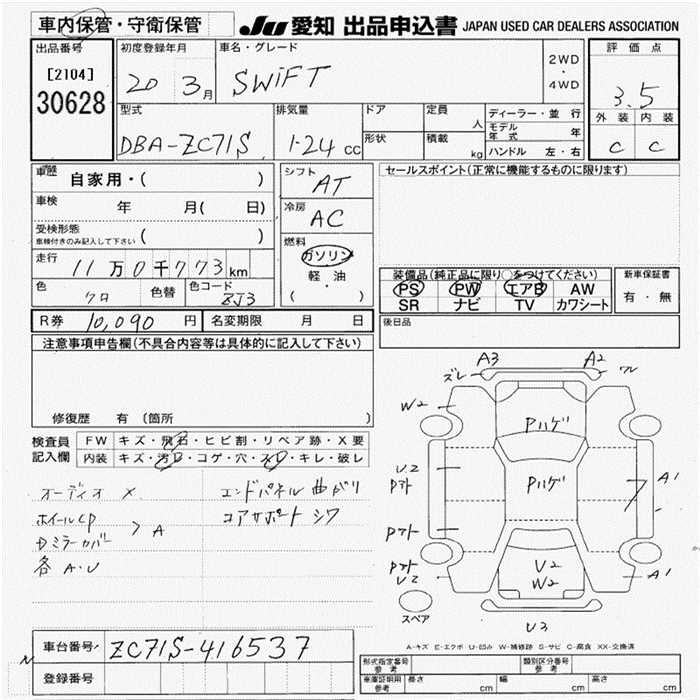 車内保管・守衛保管
JU 愛知 出品申込書 JAPAN USED CAR DEALERS ASSOCIATION
出品番号 初度登録年月 車名・グレード 評価点
[2104] 20 3月 SWiFT 2WD・4WD 3.5
30628
外装 内装
C C
型式 排気量 ドア 定員 人 ディーラー・並行
DBA-ZC71S 1.24 cc 形状 積載 kg モデル年式 年
ハンドル 左・右
車歴 自家用・( ) シフト AT セールスポイント(正常に機能するものに限ります)
車検 年 月( 日) 冷房 AC
受検形態 ( )
車検付きのみ記入して下さい
燃料 ガソリン
軽・油
( )
走行 11万0千773km
色 クロ 色替 色コード ZJ3
装備品(純正品に限り○をつけてください) 新車保証書
PS PW エアB AW 有・無
SR ナビ TV カワシート
R券 10,090円 名変期限 月 日 後日品
注意事項申告欄(不具合内容等は具体的に記入して下さい)
修復歴 有 (箇所 )
検査員記入欄 FW キズ・飛石・ヒビ割・リペア跡・X要
内装 キズ・汚レ・コゲ・穴・スレ・キレ・破レ
オーディオ X エンドパネル 曲がり
ホイールCP コアサポート シワ
Dミラーカバー > A
各 A・U
A3 A2
ズレ ワレ
W2 Pハゲ
U2 Pハゲ A1
Pアト
Pアト
Pアト U2 A1
U2 W2
スペア U3
A-キズ E-エクボ U-凹み W-補修跡 S-サビ C-腐食 XX-交換済
車台番号 ZC71S-416537
登録番号
型式指定番号 参考 類別区分番号 参考
車庫証明用 参考 長さ cm 幅 cm 高さ cm